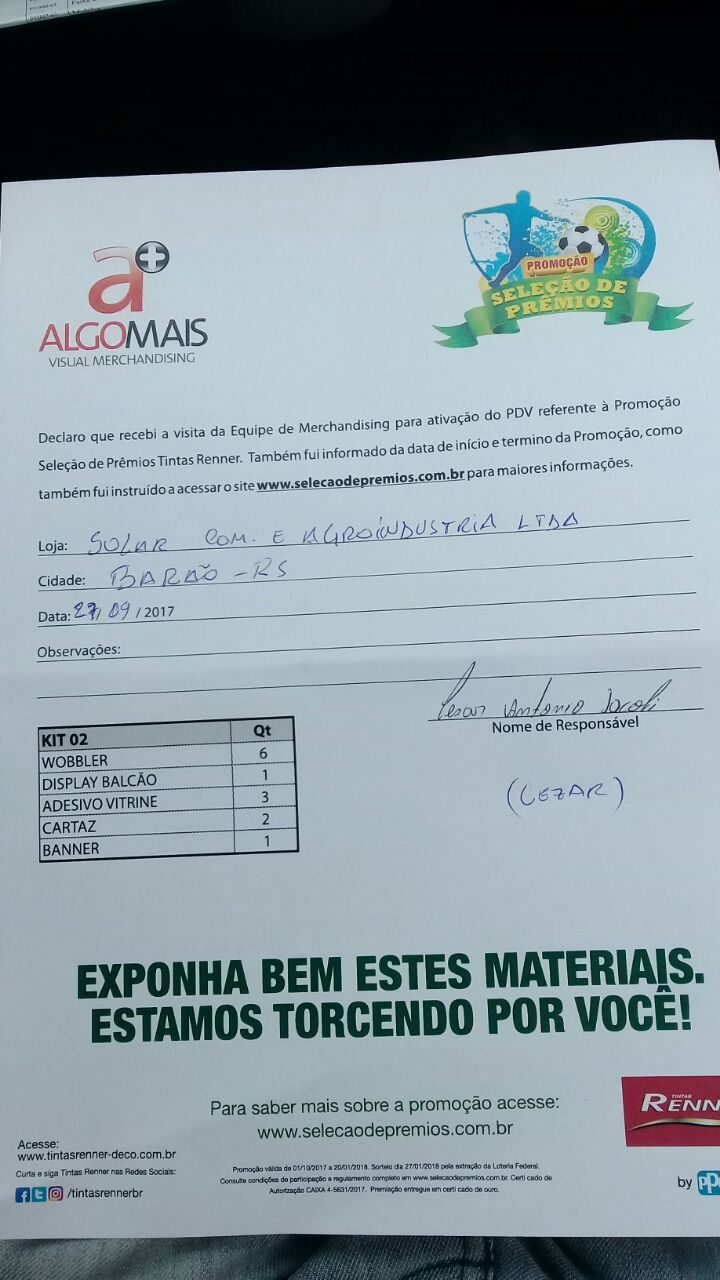 a+
ALGOMAIS
VISUAL MERCHANDISING
PROMOÇÃO
SELEÇÃO DE
PRÊMIOS
Declaro que recebi a visita da Equipe de Merchandising para ativação do PDV referente à Promoção
Seleção de Prêmios Tintas Renner. Também fui informado da data de início e termino da Promoção, como
também fui instruído a acessar o site www.selecaodepremios.com.br para maiores informações.
Loja: SOLAR COM. E AGROINDUSTRIA LTDA
Cidade: BARÃO - RS
Data: 27/09/2017
Observações:
Cesar Antonio
Nome de Responsável
(CEZAR)
KIT 02 Qt
WOBBLER 6
DISPLAY BALCÃO 1
ADESIVO VITRINE 3
CARTAZ 2
BANNER 1
EXPONHA BEM ESTES MATERIAIS.
ESTAMOS TORCENDO POR VOCÊ!
Para saber mais sobre a promoção acesse:
www.selecaodepremios.com.br
TINTAS
RENN
Acesse:
www.tintasrenner-deco.com.br
Curta e siga Tintas Renner nas Redes Sociais:
/tintasrennerbr
Promoção válida de 01/10/2017 a 20/01/2018. Sorteio dia 27/01/2018 pela extração da Loteria Federal.
Consulte condições de participação e regulamento completo em www.selecaodepremios.com.br. Certi cado de
Autorização CAIXA 4-5631/2017. Premiação entregue em certi cado de ouro.
by pp